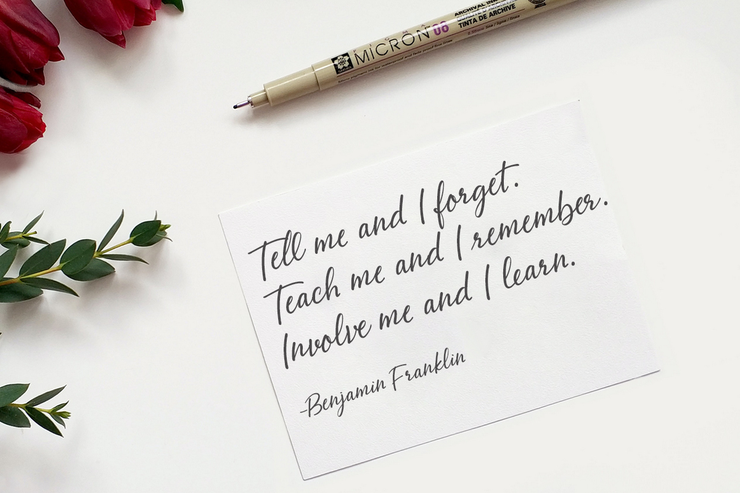 MICRON 06
ARCHIVAL INK
TINTA DE ARCHIVE
Tell me and I forget.
Teach me and I remember.
Involve me and I learn.
-Benjamin Franklin